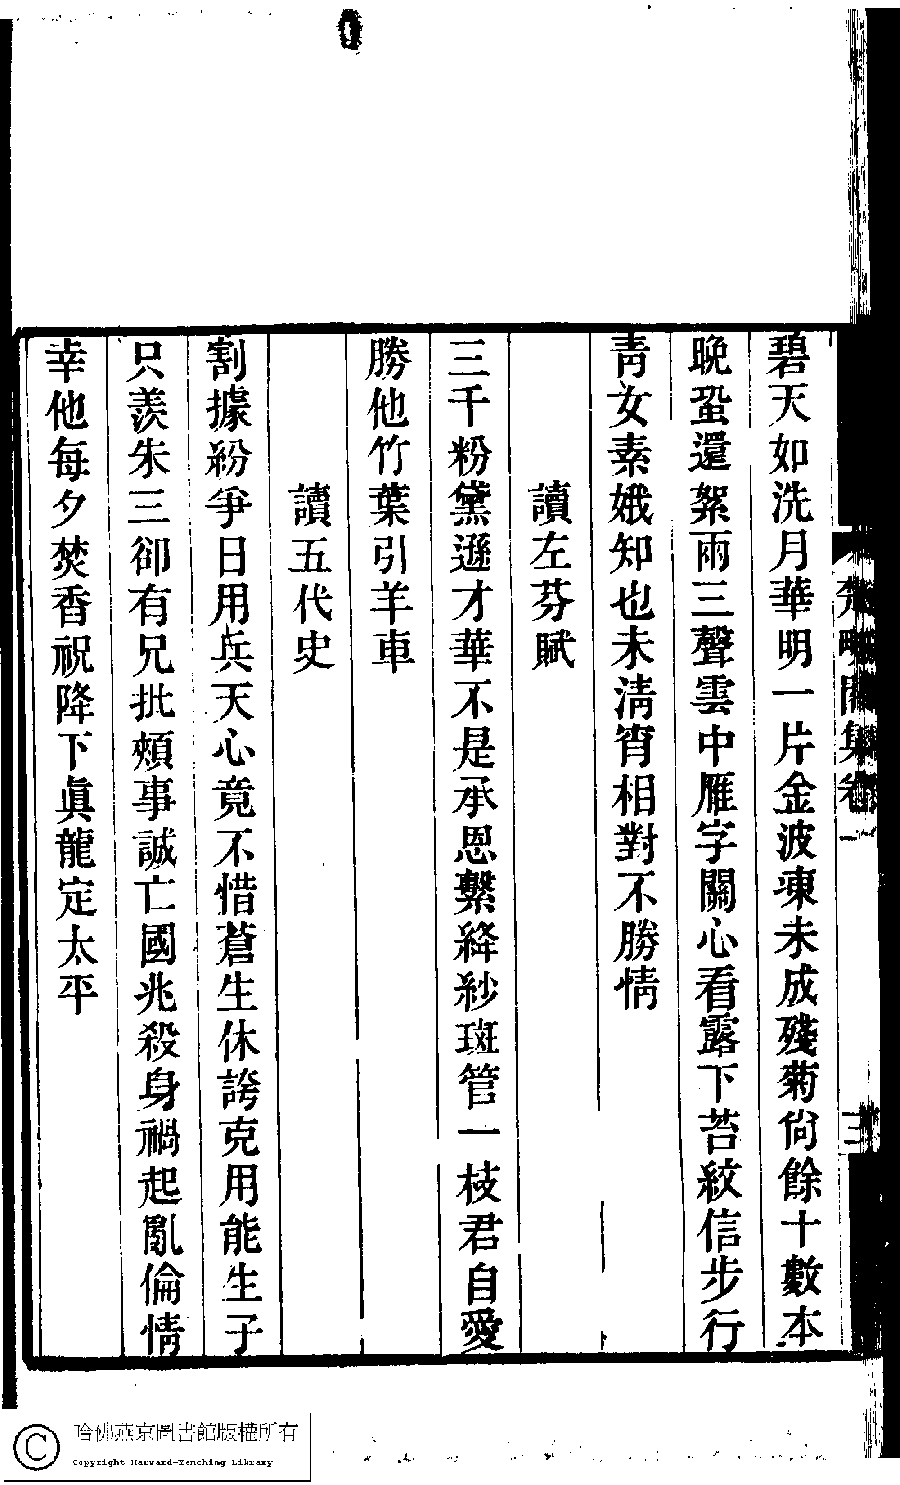 碧天如洗月華明一片金波凍未成殘菊尙餘十數本
晚蛩還絮雨三聲雲中雁字關心看露下苔紋信步行
靑女素娥知也未淸宵相對不勝情
讀左芬賦
三千粉黛遜才華不是承恩繫絳紗斑管一枝君自愛
勝他竹葉引羊車
讀五代史
割據紛爭日用兵天心竟不惜蒼生休誇克用能生子
只羨朱三卻有兄批頰事誠亡國兆殺身禍起亂倫情
幸他每夕焚香祝降下眞龍定太平
哈佛燕京圖書館版權所有
Copyright Harvard-Yenching Library